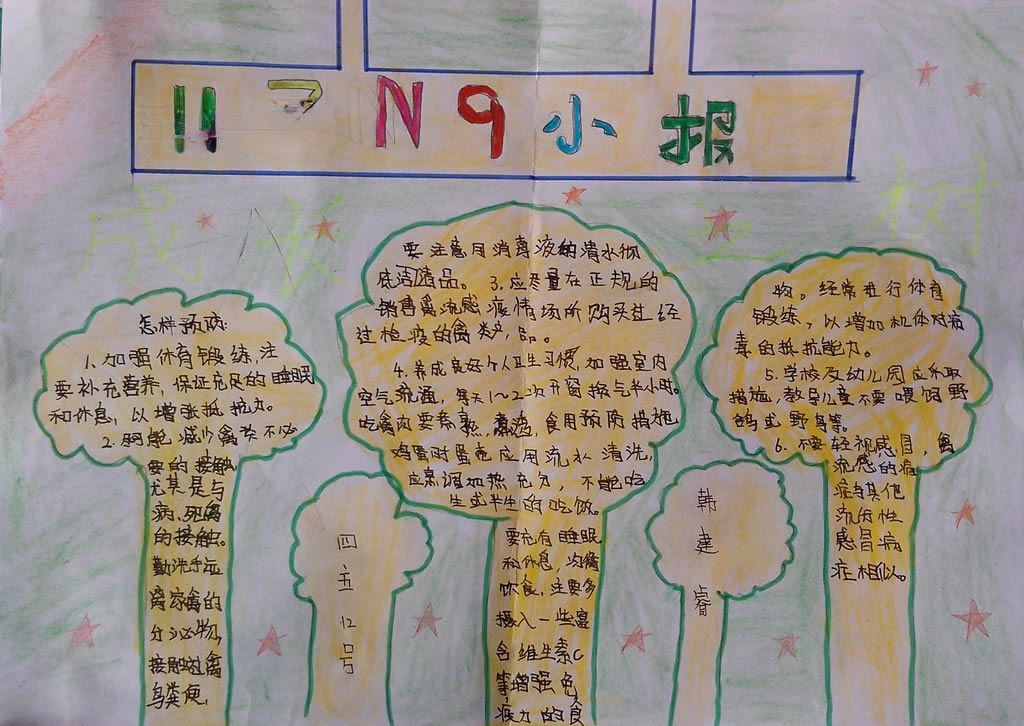 H7N9小报
怎样预病:
1.加强体育锻练,注
要补充营养,保证充足的睡眠
和休息,以增张抵抗力。
2.尽能减少禽类不必
要的接触,
尤其是与
病、死禽
的接触。
勤洗手远
离家禽的
分泌物,
接触过禽
鸟粪便,
四五12号
要注意用消毒液纳清水彻
底洁清品。3.应尽量在正规的
销售禽流感疫情场所购买过经
过检疫的禽类产品。
4.养成良好个人卫生习惯,加强室内
空气流通,每天1~2次开窗报气半小时。
吃禽肉要煮熟,煮沸,食用预防措施
鸡蛋时蛋壳应用流水清洗,
应烹调加热充分,不能吃
生或半生的吃做。
要充有睡眠
和休息,均衡
饮食,注要多
摄入一些富
含维生素C
等增强免
疫力的食
韩建睿
物。经常进行体育
锻练,以增加机体对病
毒的抵抗能力。
5.学校及幼儿园应采取
措施,教导儿童不要喂饲野
鸽或野鸟等。
6.不要轻视感冒,禽
流感的病
症与其他
流行性
感冒病
症相似。